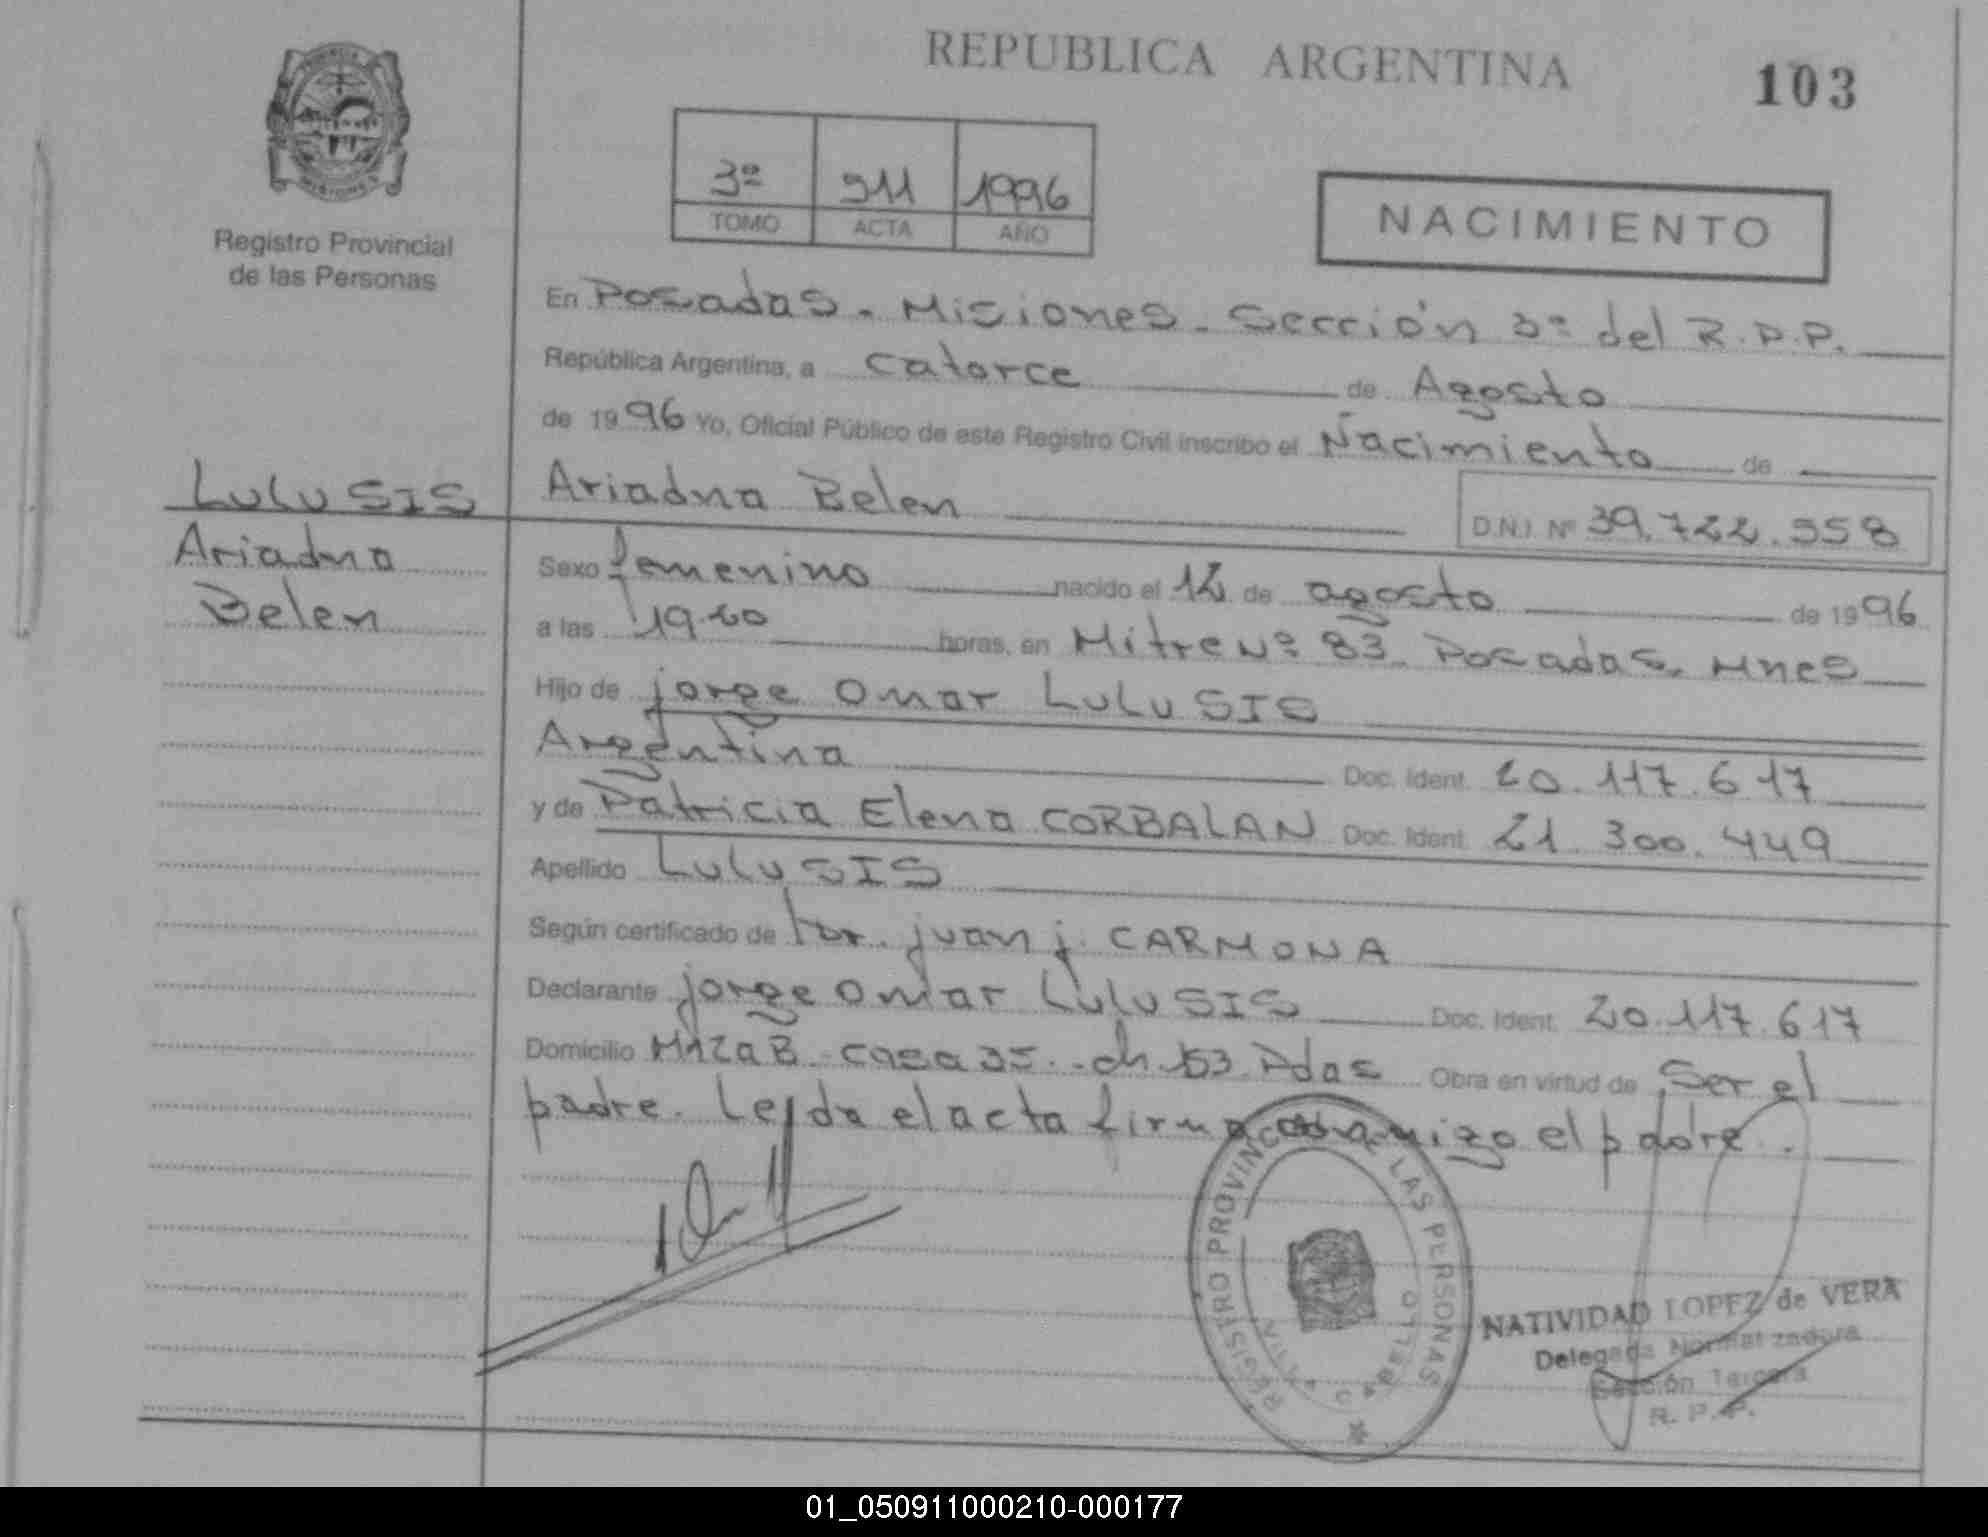 REPUBLICA ARGENTINA
103
3º 911 1996
TOMO ACTA AÑO
NACIMIENTO
Registro Provincial
de las Personas
En Posadas. Misiones. Sección 3º del R.P.P.
República Argentina, a catorce de Agosto
de 1996 Yo, Oficial Público de este Registro Civil inscribo el Nacimiento de
LULUSIS
Ariadna
Belen
Ariadna Belen
D.N.I. Nº 39.722.958
Sexo femenino nacido el 12 de agosto de 1996
a las 19.20 horas, en Mitre Nº 83. Posadas. Mnes
Hijo de jorge Omar LULUSIS
Argentina Doc. Ident. 20.117.617
y de Patricia Elena CORBALAN Doc. Ident. 21.300.449
Apellido LULUSIS
Según certificado de juan j. CARMONA
Declarante jorge Omar LULUSIS Doc. Ident. 20.117.617
Domicilio MnzaB. casa 35. ch. 153. Pdas Obra en virtud de Ser el
padre. Leída el acta firma conmigo el padre.
REGISTRO PROVINCIAL DE LAS PERSONAS
NATIVIDAD LOPEZ de VERA
Delegada Normalizadora
Sección Tercera
R. P. P.
01_050911000210-000177